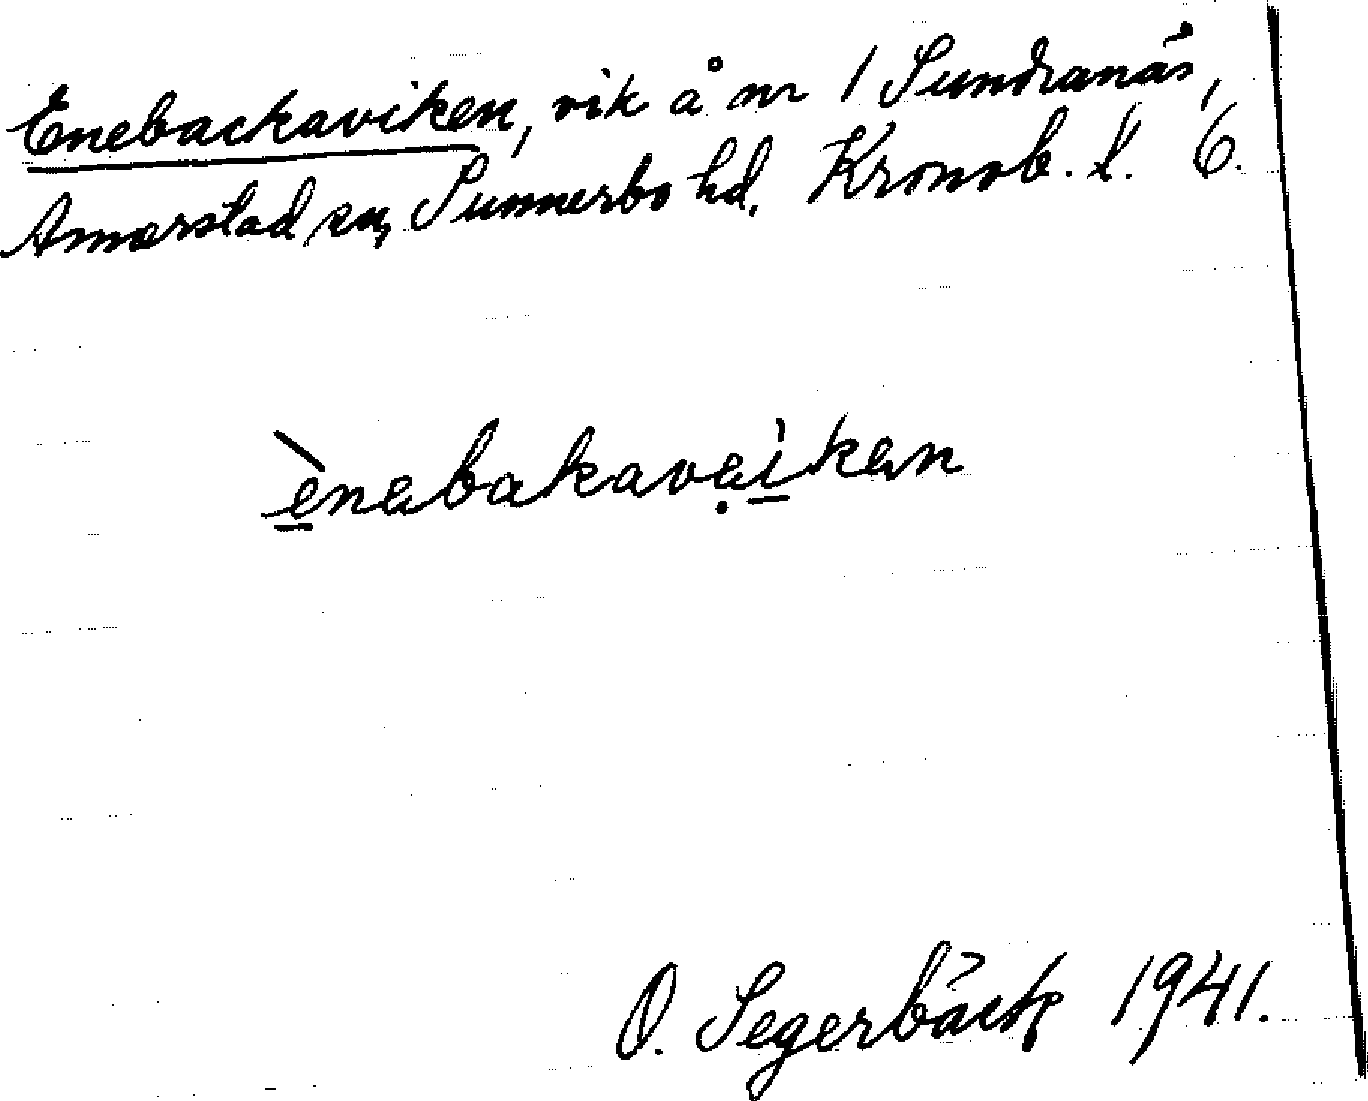 Enebackaviken, vik å nr 1 Sundranäs,
Annerstad sn, Sunnerbo hd. Kronob. l. 6.
ènebakaveiken
O. Segerbäck 1941.